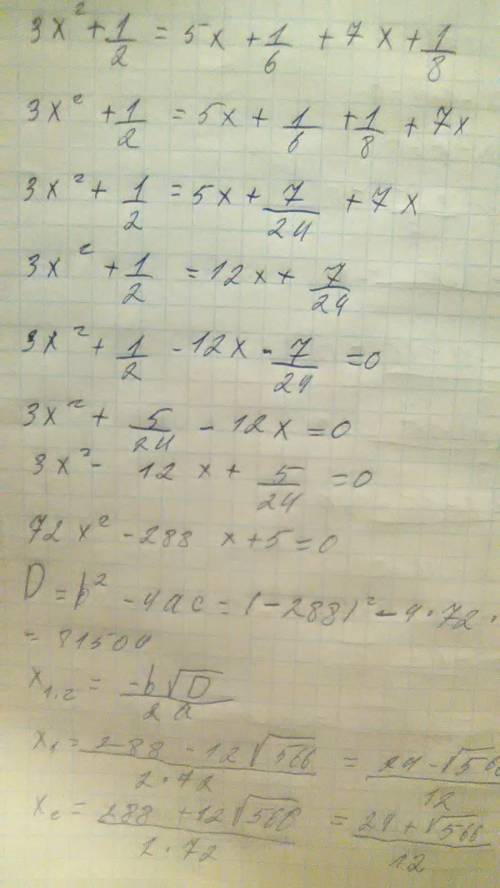 3x² + 1/2 = 5x + 1/6 + 7x + 1/8
3x² + 1/2 = 5x + 1/6 + 1/8 + 7x
3x² + 1/2 = 5x + 7/24 + 7x
3x² + 1/2 = 12x + 7/24
3x² + 1/2 - 12x - 7/24 = 0
3x² + 5/24 - 12x = 0
3x² - 12x + 5/24 = 0
72x² - 288x + 5 = 0
D = b² - 4ac = (-288)² - 4·72·
= 81504
x₁.₂ = -b√D/2a
x₁ = 288 - 12√566/2·72 = 24 - √566/12
x₂ = 288 + 12√566/2·72 = 24 + √566/12